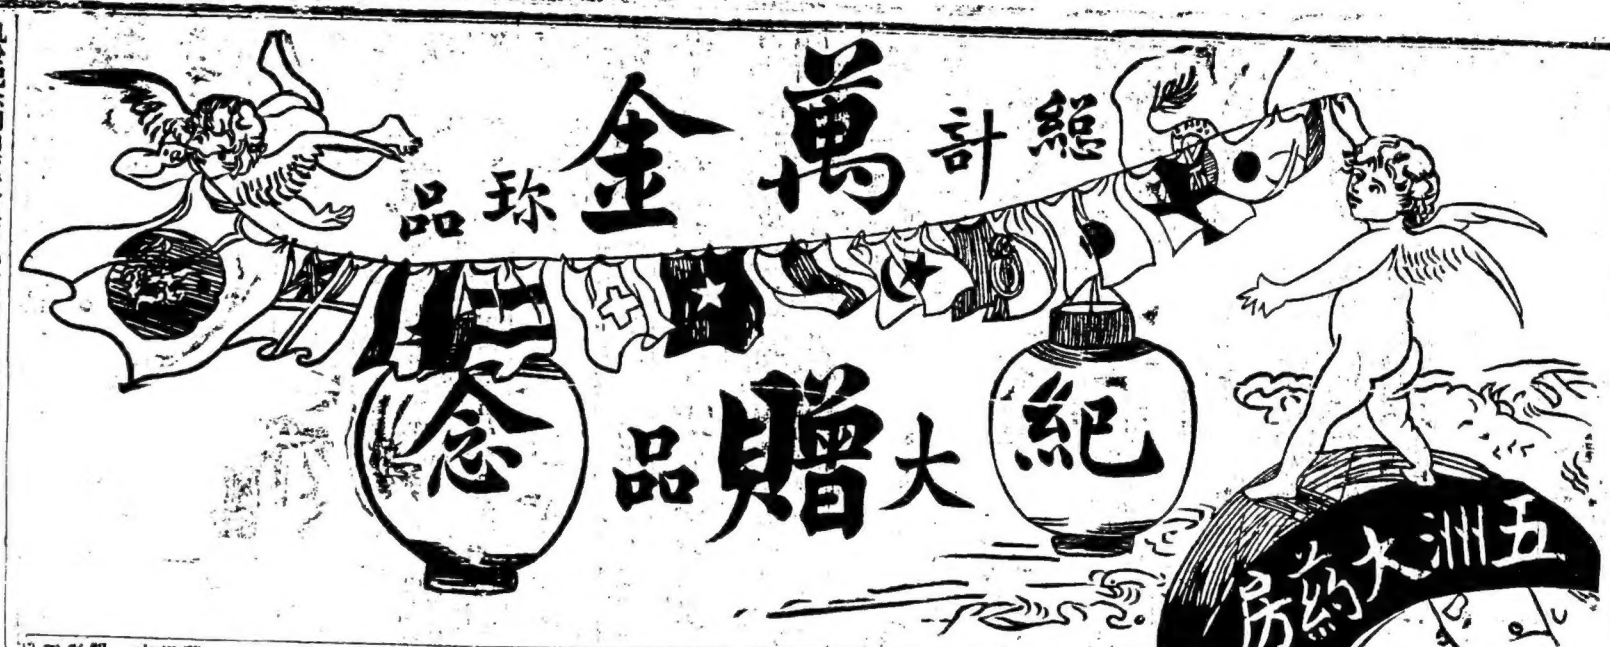 緫計萬金珎品
紀念
大贈品
五洲大葯房